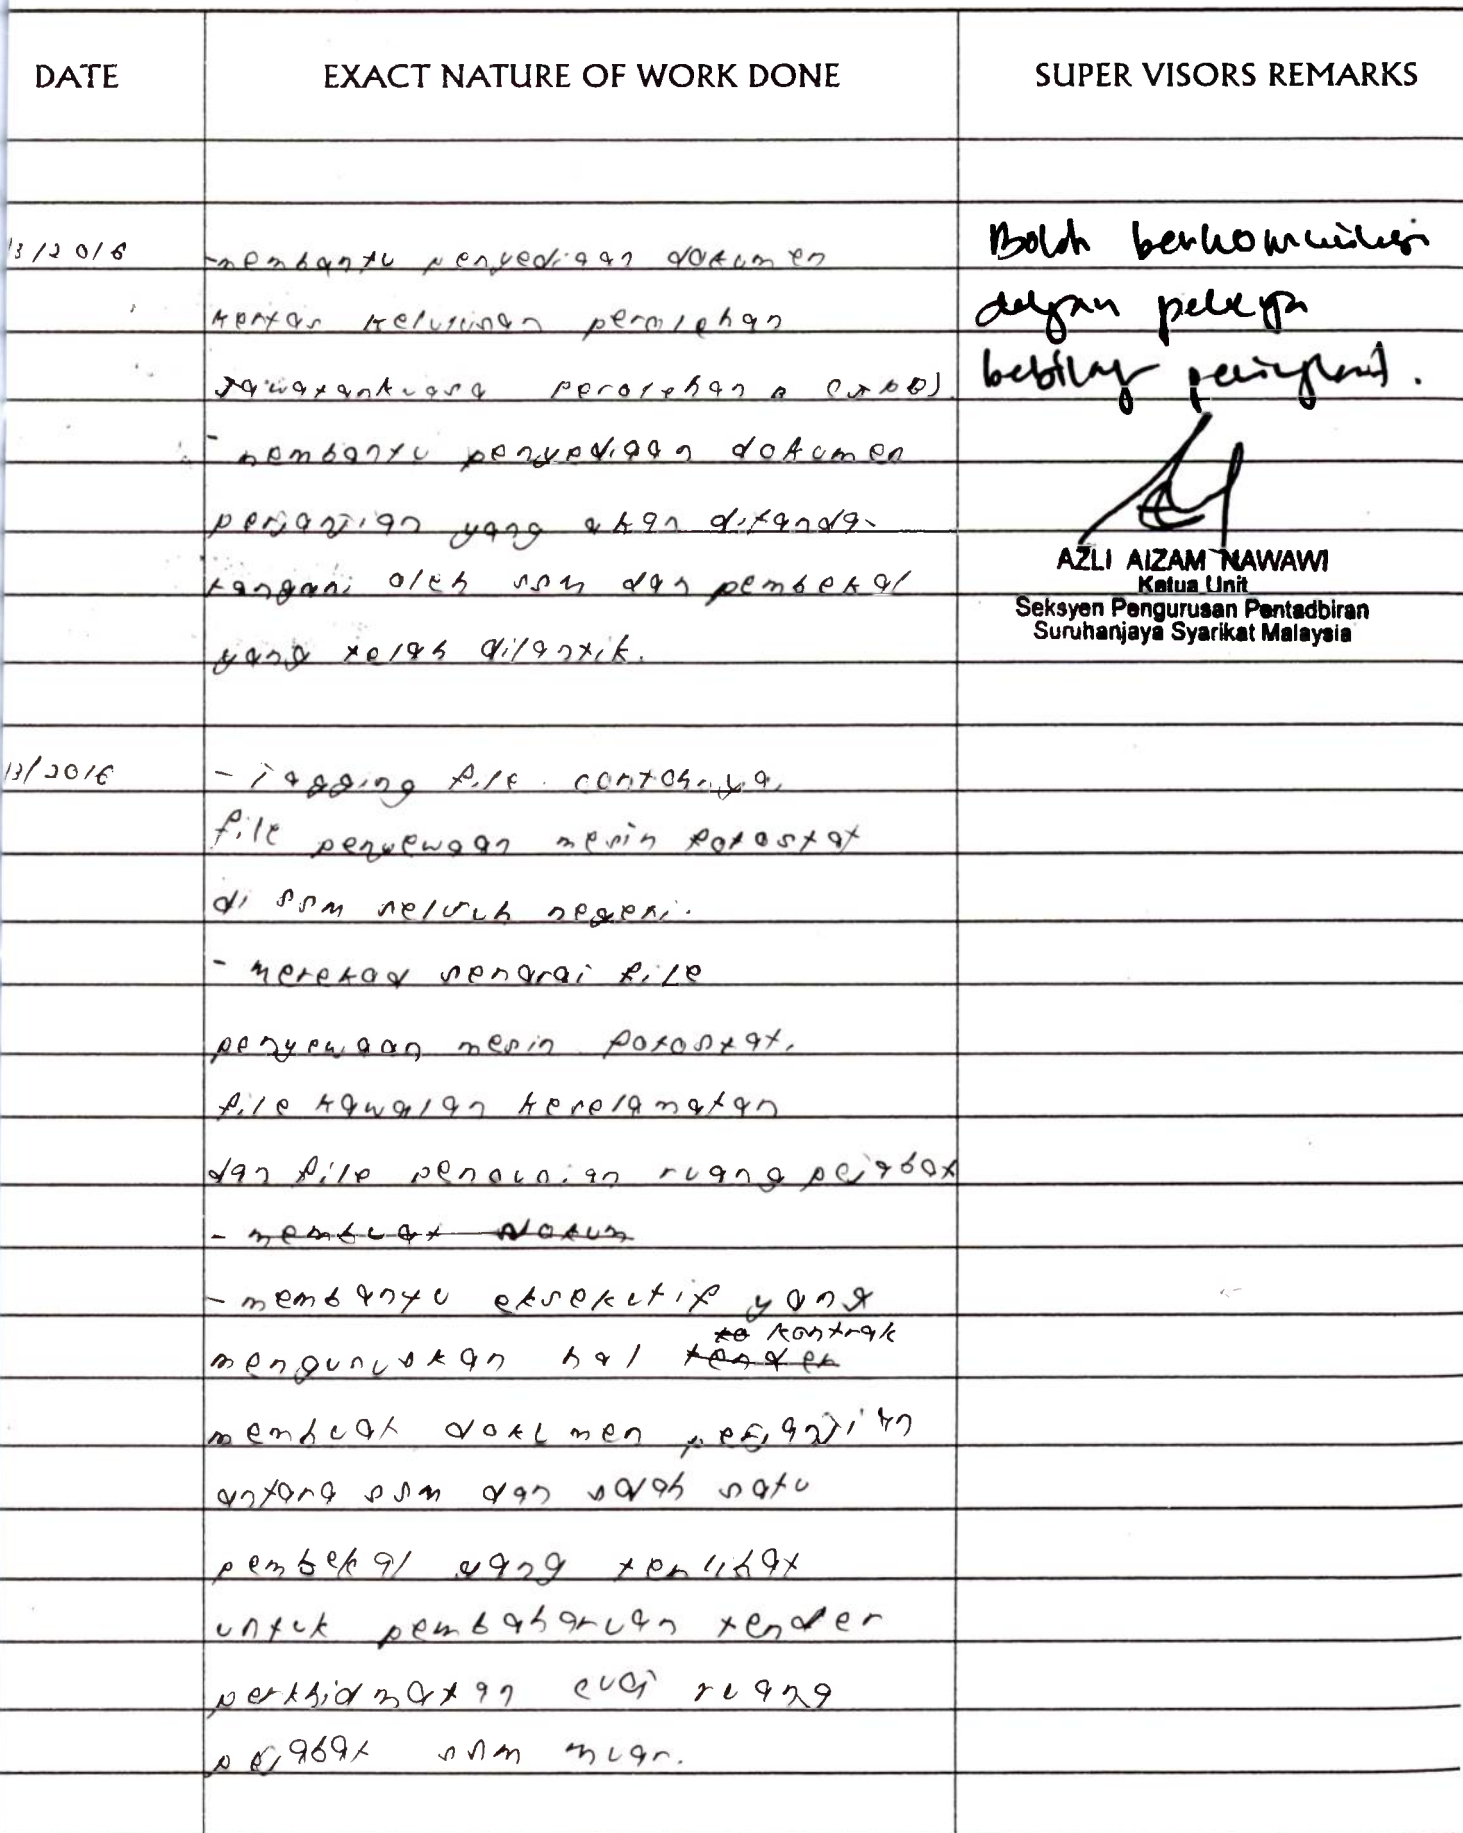 DATE EXACT NATURE OF WORK DONE SUPER VISORS REMARKS
3/2016
-membantu penyediaan dokumen
kertas kelulusan perolehan
Jawatankuasa perolehan B
- membantu penyediaan dokumen
perjanjian yang akan ditanda-
tangani oleh ssm dan pembekal
yang telah dilantik.
Boleh berkomunikasi
dengan pekerja
AZLI AIZAM NAWAWI
Ketua Unit
Seksyen Pengurusan Pentadbiran
Suruhanjaya Syarikat Malaysia
3/2016
- Tagging file contohnya,
file penyewaan mesin fotostat
di ssm seluruh negeri.
- merekod senarai file
penyewaan mesin fotostat,
file kawalan keselamatan
dan file pencucian ruang pejabat
- membuat dokum
- membantu eksekutif yang
kontrak
menguruskan hal tender
membuat dokumen perjanjian
antara ssm dan salah satu
pembekal yang terlibat
untuk pembaharuan tender
perkhidmatan cuci ruang
pejabat ssm muar.